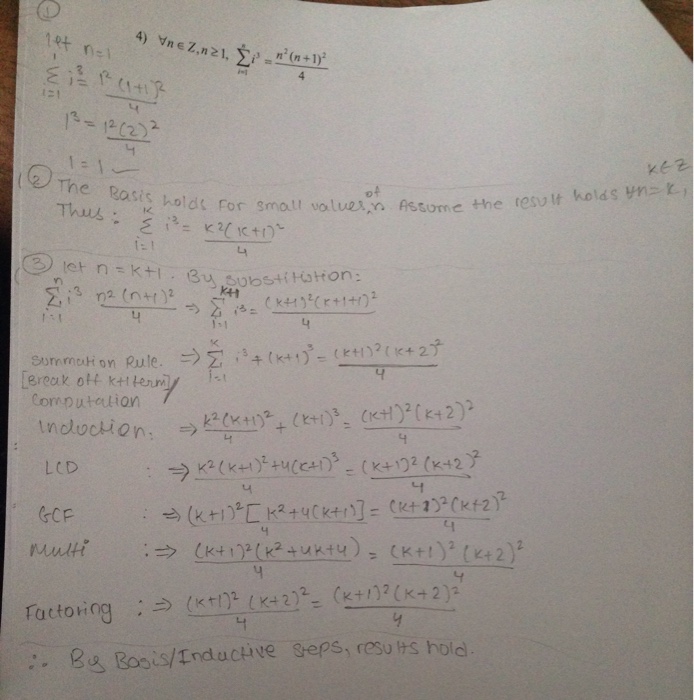 ①
4) ∀n ∈ Z, n ≥ 1, Σ_{i=1}^{n} i³ = n²(n+1)²/4
let n=1
Σ_{i=1}^{1} i³ = 1²(1+1)²/4
1³ = 1²(2)²/4
1 = 1 ✓
② The Basis holds for small values of n. Assume the result holds ∀n=k, k∈Z
Thus: Σ_{i=1}^{k} i³ = k²(k+1)²/4
③ let n = k+1. By substitution:
Σ_{i=1}^{n} i³ n²(n+1)²/4 ⇒ Σ_{i=1}^{k+1} i³ = (k+1)²(k+1+1)²/4
Summation Rule. ⇒ Σ_{i=1}^{k} i³ + (k+1)³ = (k+1)²(k+2)²/4
[Break off k+1 term]
Computation
Induction: ⇒ k²(k+1)²/4 + (k+1)³ = (k+1)²(k+2)²/4
LCD : ⇒ k²(k+1)²+4(k+1)³/4 = (k+1)²(k+2)²/4
GCF : ⇒ (k+1)²[k²+4(k+1)]/4 = (k+1)²(k+2)²/4
Multi : ⇒ (k+1)²(k²+4k+4)/4 = (k+1)²(k+2)²/4
Factoring : ⇒ (k+1)²(k+2)²/4 = (k+1)²(k+2)²/4
∴ By Basis/Inductive steps, results hold.